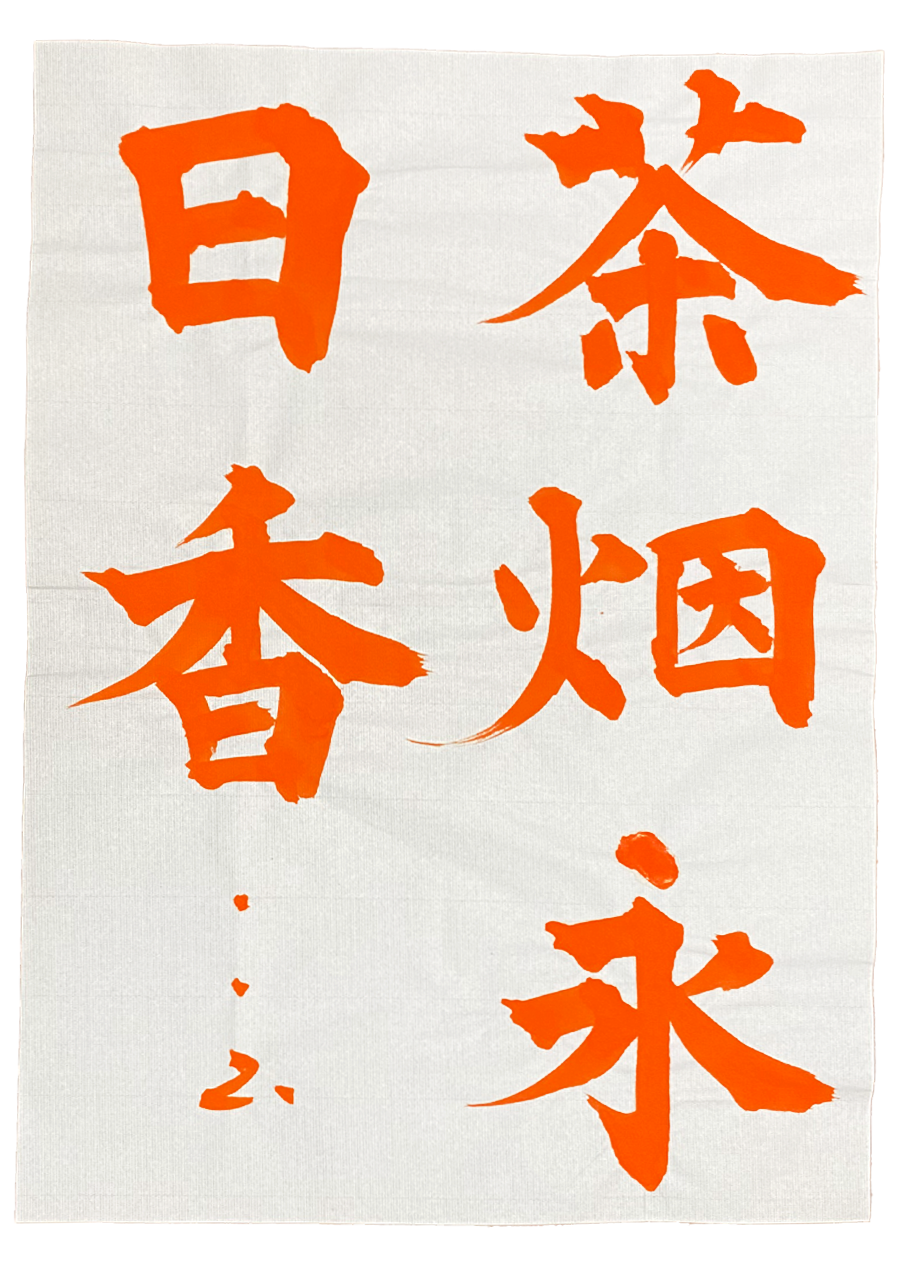 茶烟永
日香